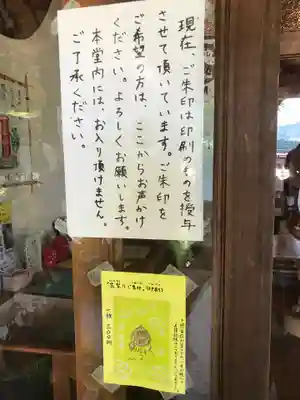 現在、ご朱印は印刷のものを授与
させて頂いています。ご朱印を
ご希望の方は、ここからお声かけ
ください。よろしくお願いします。
本堂内には、お入り頂けません。
ご了承ください。